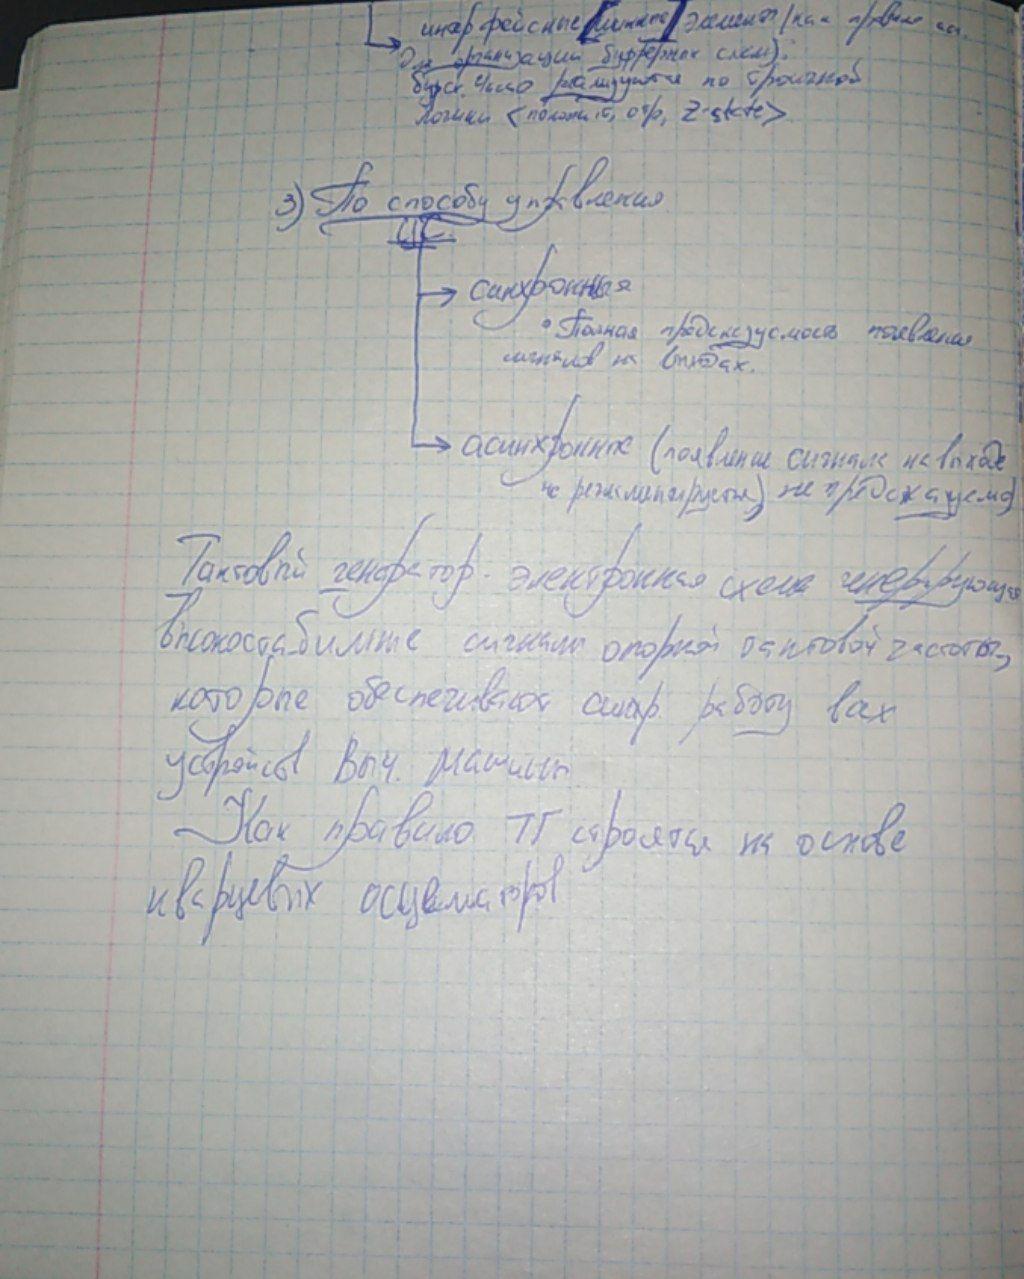 интерфейсные [шинные] элементы (как правило исп.
для организации буферных схем).
часто реализуются по троичной
логики <положит, отр, z-state>
3) По способу управления
ЦС.
синхронныя
• Полная предсказуемость появления
сигналов на выходах.
асинхронных (появление сигнала на выходе
не регламентируется) не предсказуемо
Тактовый генератор - электронная схема генерирующая
высокостабильные сигналы опорной тактовой частоты,
которые обеспечивают синхр. работу всех
устройств Выч. машины
Как правило ТГ строятся на основе
кварцевых осцилляторов